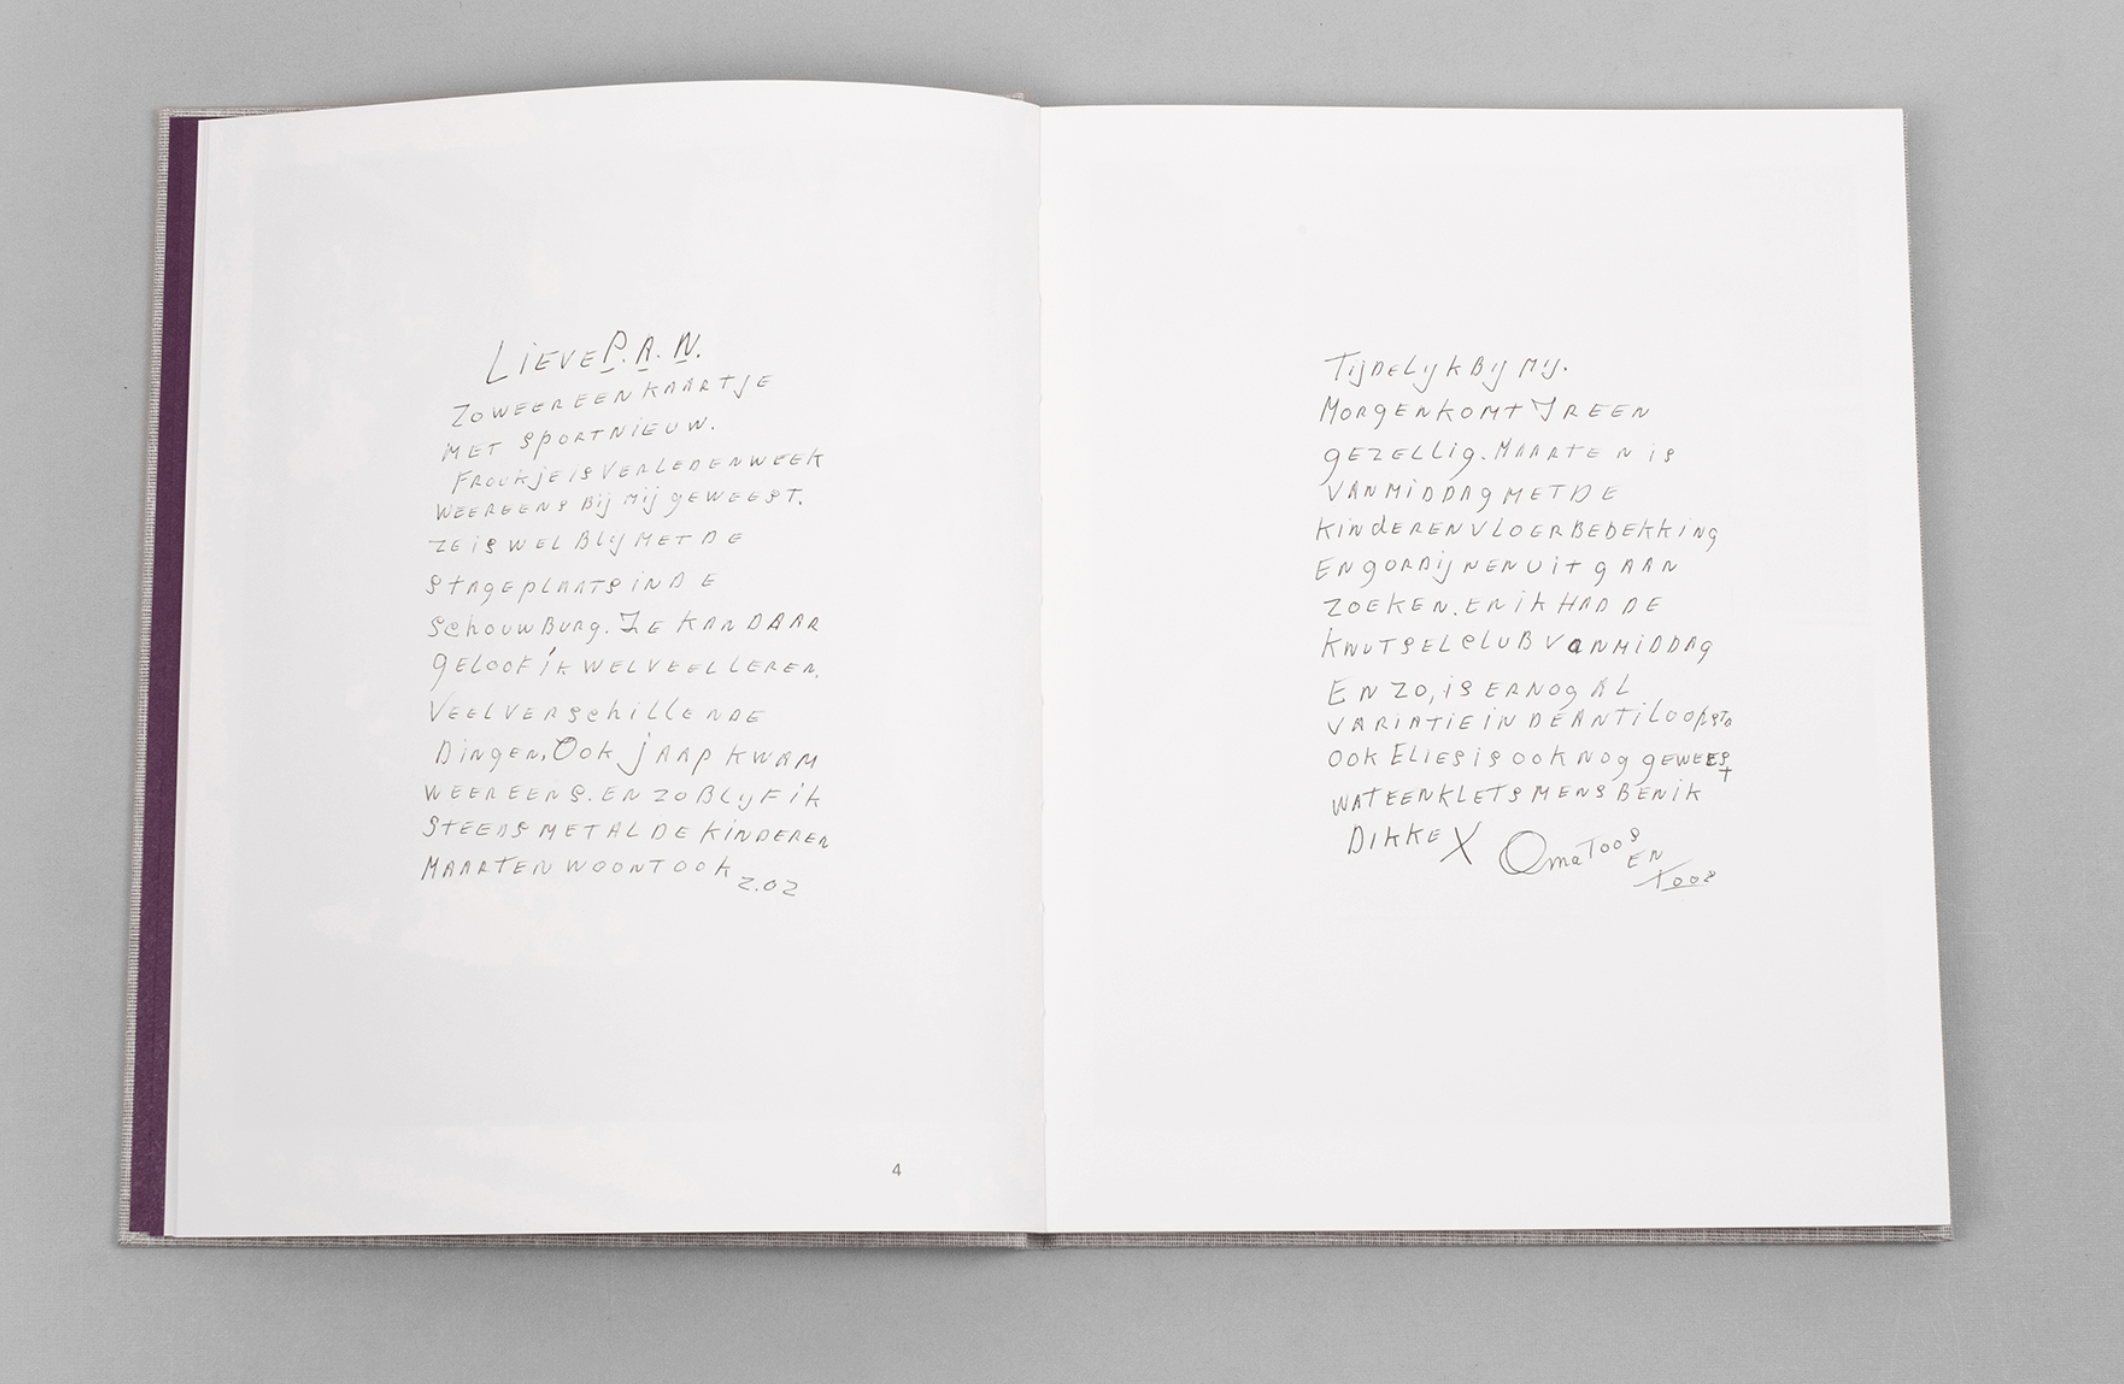 LIEVE P.A.N.
ZO WEER EEN KAARTJE
MET SPORTNIEUW.
FROUKJE IS VERLEDEN WEEK
WEEREENS BIJ MIJ GEWEEST.
ZE IS WEL BLIJ MET DE
STAGEPLAATS IN DE
SCHOUWBURG. JE KAN DAAR
GELOOF IK WEL VEEL LEREN.
VEEL VERSCHILLENDE
DINGEN. OOK JAAP KWAM
WEER EENS. EN ZO BLIJF IK
STEEDS MET AL DE KINDEREN
MAARTEN WOONT OOK Z.OZ
4
TIJDELIJK BIJ MIJ.
MORGEN KOMT IREEN
GEZELLIG. MAARTEN IS
VANMIDDAG MET DE
KINDEREN VLOERBEDEKKING
EN GORDIJNEN UIT GAAN
ZOEKEN. EN IK HAD DE
KNUTSELCLUB VANMIDDAG
EN ZO, IS ER NOG AL
VARIATIE IN DE ANTILOOPSTR
OOK ELIES IS OOK NOG GEWEEST
WAT EEN KLETSMENS BEN IK
DIKKE X Oma Toos
EN
Toos